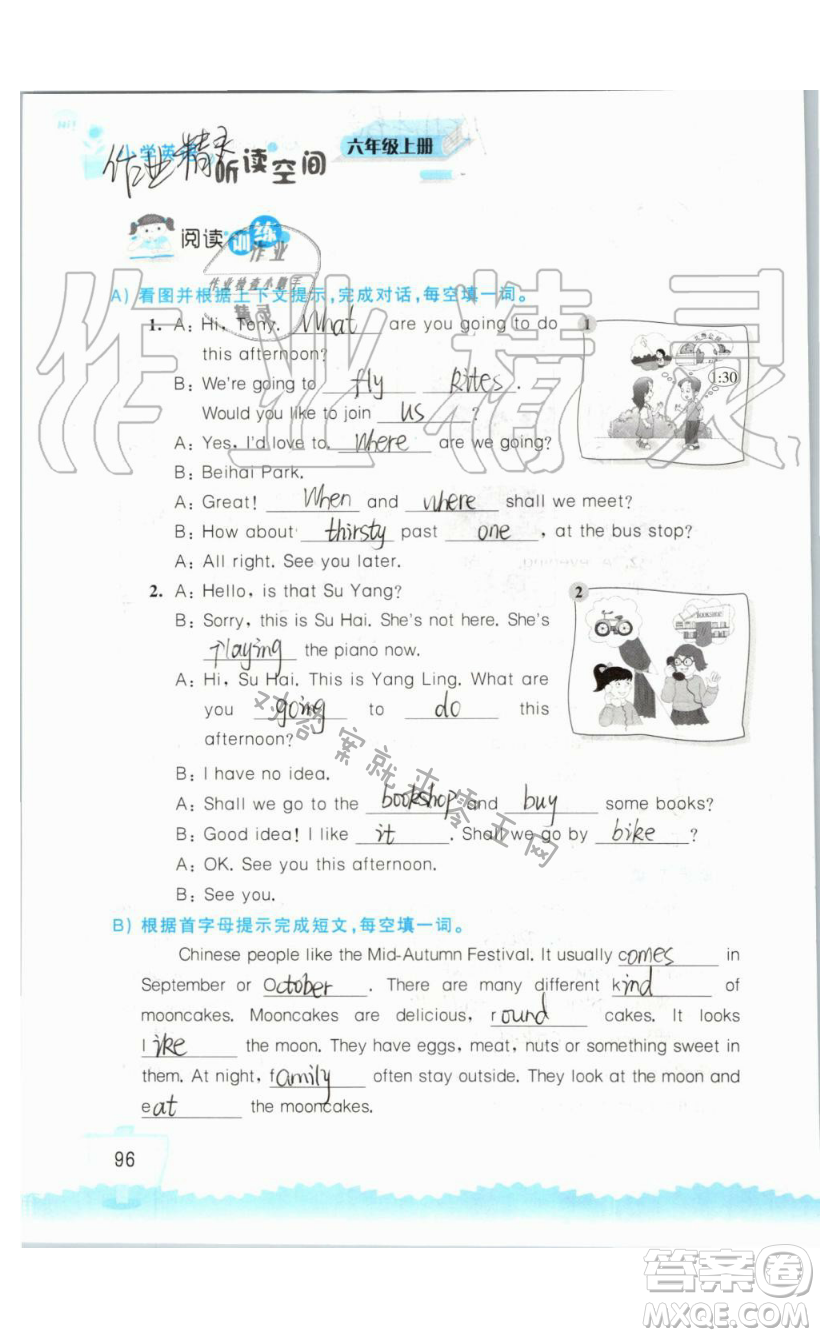 小学英语
作业精灵
听读空间
六年级上册
阅读训练
作业
作业检查小助手
精灵
作业精灵
A) 看图并根据上下文提示,完成对话,每空填一词。
1. A: Hi, Tony. What are you going to do
this afternoon?
1
1:30
B: We're going to fly kites.
Would you like to join us?
A: Yes, I'd love to. Where are we going?
B: Beihai Park.
A: Great! When and where shall we meet?
B: How about thirsty past one, at the bus stop?
A: All right. See you later.
2. A: Hello, is that Su Yang?
2
B: Sorry, this is Su Hai. She's not here. She's
playing the piano now.
A: Hi, Su Hai. This is Yang Ling. What are
you going to do this
afternoon?
B: I have no idea.
A: Shall we go to the bookshop and buy some books?
B: Good idea! I like it. Shall we go by bike?
A: OK. See you this afternoon.
B: See you.
对答案就来零五网
B) 根据首字母提示完成短文,每空填一词。
Chinese people like the Mid-Autumn Festival. It usually comes in
September or October. There are many different kind of
mooncakes. Mooncakes are delicious, round cakes. It looks
like the moon. They have eggs, meat, nuts or something sweet in
them. At night, family often stay outside. They look at the moon and
eat the mooncakes.
96
答案卷
MXQE.COM